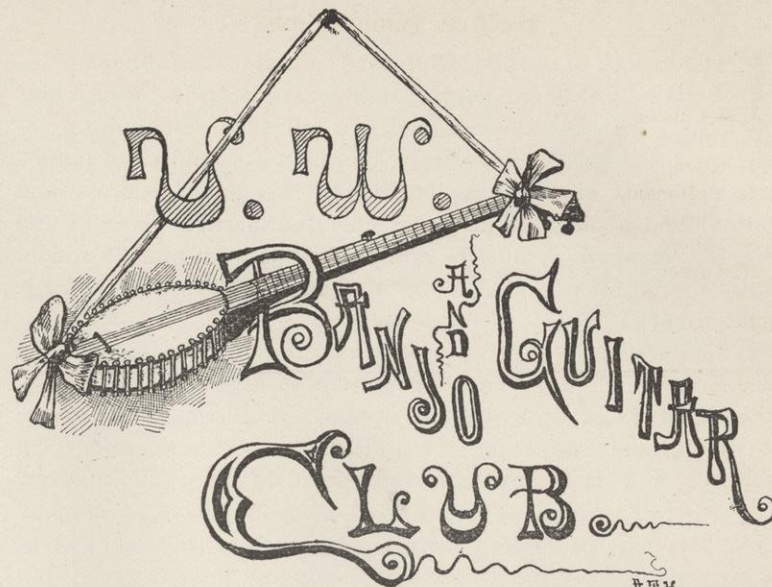 U. W.
BANJO AND GUITAR
CLUB